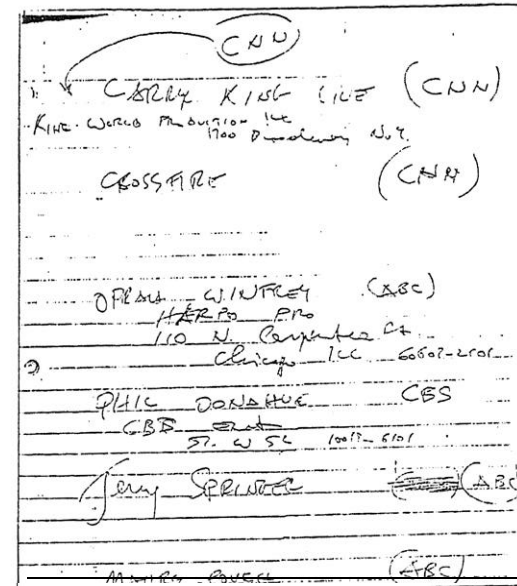 CNN
LARRY KING LIVE (CNN)
KING WORLD PRODUCTION INC
1700 Broadway N.Y.
CROSSFIRE (CNN)
OPRAH WINFREY (ABC)
HARPO PRO
110 N. Carpenter St
Chicago ILL 60607-2101
PHIL DONAHUE CBS
CBS
57. W 56
Jerry SPRINGER (ABC)
(ABC)